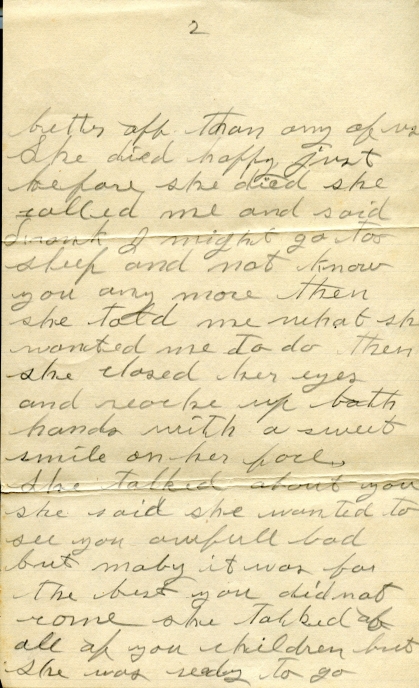 2
better off than any of us
She died happy just
before she died she
called me and said
Frank I might go to
sleep and not know
you any more then
she told me what she
wanted me to do then
she closed her eyes
and reache up both
hands with a sweet
smile on her face.
She talked about you
she said she wanted to
see you awfull bad
but maby it was for
the best you did not
come she talked of
all of you children but
she was ready to go